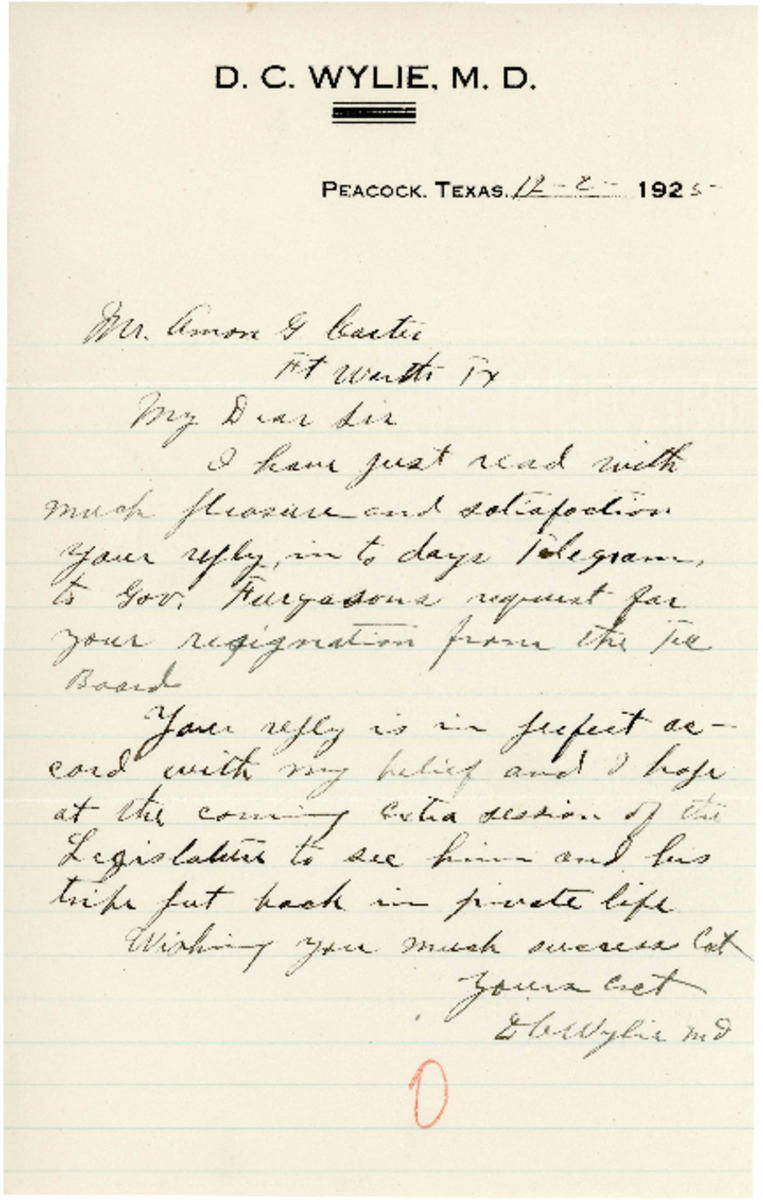 D. C. WYLIE, M. D.
PEACOCK, TEXAS. 12-2- 1925-
Mr. Amon G Carter
Ft Worth Tx
My Dear Sir
I have just read with
much pleasure and satisfaction
your reply, in to days Telegram,
to Gov. Furgasons request for
your resignation from the Tec
Board
Your reply is in perfect ac-
cord with my belief and I hope
at the coming extra session of the
Legislature to see him and his
tribe put back in private life
Wishing you much success
Yours
D C Wylie MD